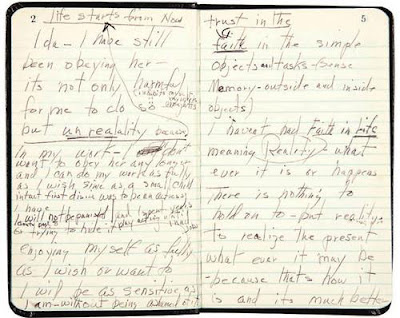 2 life starts from Now
Ida - I have still
been obeying her -
its not only harmful
for me to do so
but unreality because
In my work - I don't
want to obey her any longer
and I can do my work as fully
as I wish since as a small child
intact first desire was to be an actress
I have
I will not be punished
or trying to hide it
enjoying myself as fully
as I wish or want to
I will be as sensitive as
I am - without being ashamed of it
5
trust in the
faith in the simple
objects and tasks - sense
Memory - outside and inside
objects)
I havent had Faith in Life
meaning Reality - what
ever it is or happens
There is nothing to
hold on to - but reality
to realize the present
what ever it may be
- because thats how it
is and its much better